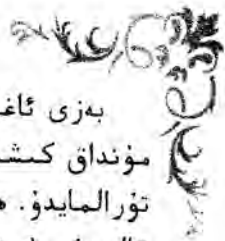 بەزى ئاغ
مۇنداق كىش
تۇرالمايدۇ. ھ